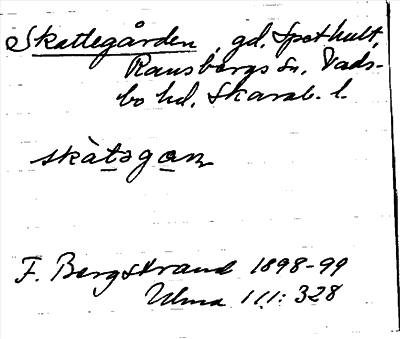 Skattegården, gd, Spethult,
Ransbergs sn, Vads-
bo hd, Skarab. l.
skàtəgaɳ
F. Bergstrand 1898-99
Ulma 111:328